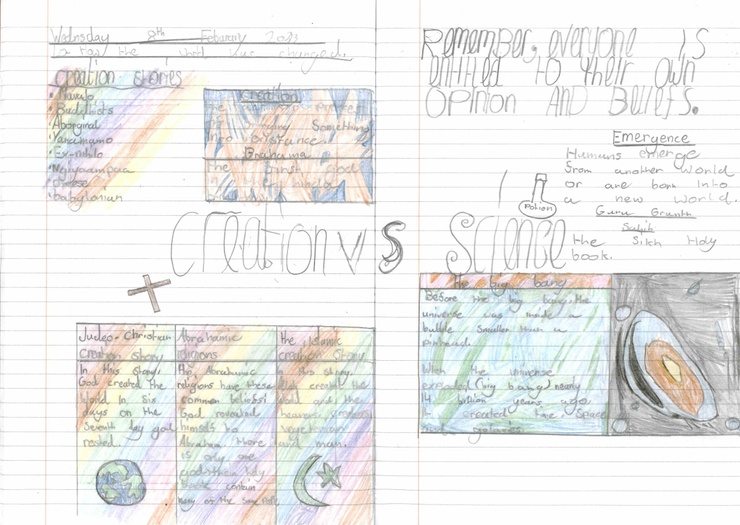 Wednesday 8th February
Creation Stories
Navajo
Buddhists
Aboriginal
Yanamamo
Ex-nihilo
Chinese
babylonian
Creation
Something
into Existence
Brahama
the first God
Remember, everyone is
entitled to their own
Opinion AND Beliefs.
Emergence
Humans emerge
from another world
or are born into
a new world.
Guru Granth
Sahib
the Sikh Holy
book.
Potion
Creation VS Science
Judeo-Christian
Creation Story
In this story,
God created the
World in six
days on the
Seventh day god
rested.
Abrahamic
religions
The Abrahamic
religions have these
common beliefs:
God revealed
himself to
Abraham there
is only one
god, their holy
books contain
many of the same
the Islamic
Creation Story.
In this story,
Allah created the
and the
heavens,
vegetation
and man.
the big bang
Before the big bang, the
universe was inside a
bubble smaller than a
pinhead.
When the universe
expanded (big bang) nearly
14 billion years ago
it created time, space
and galaxies.